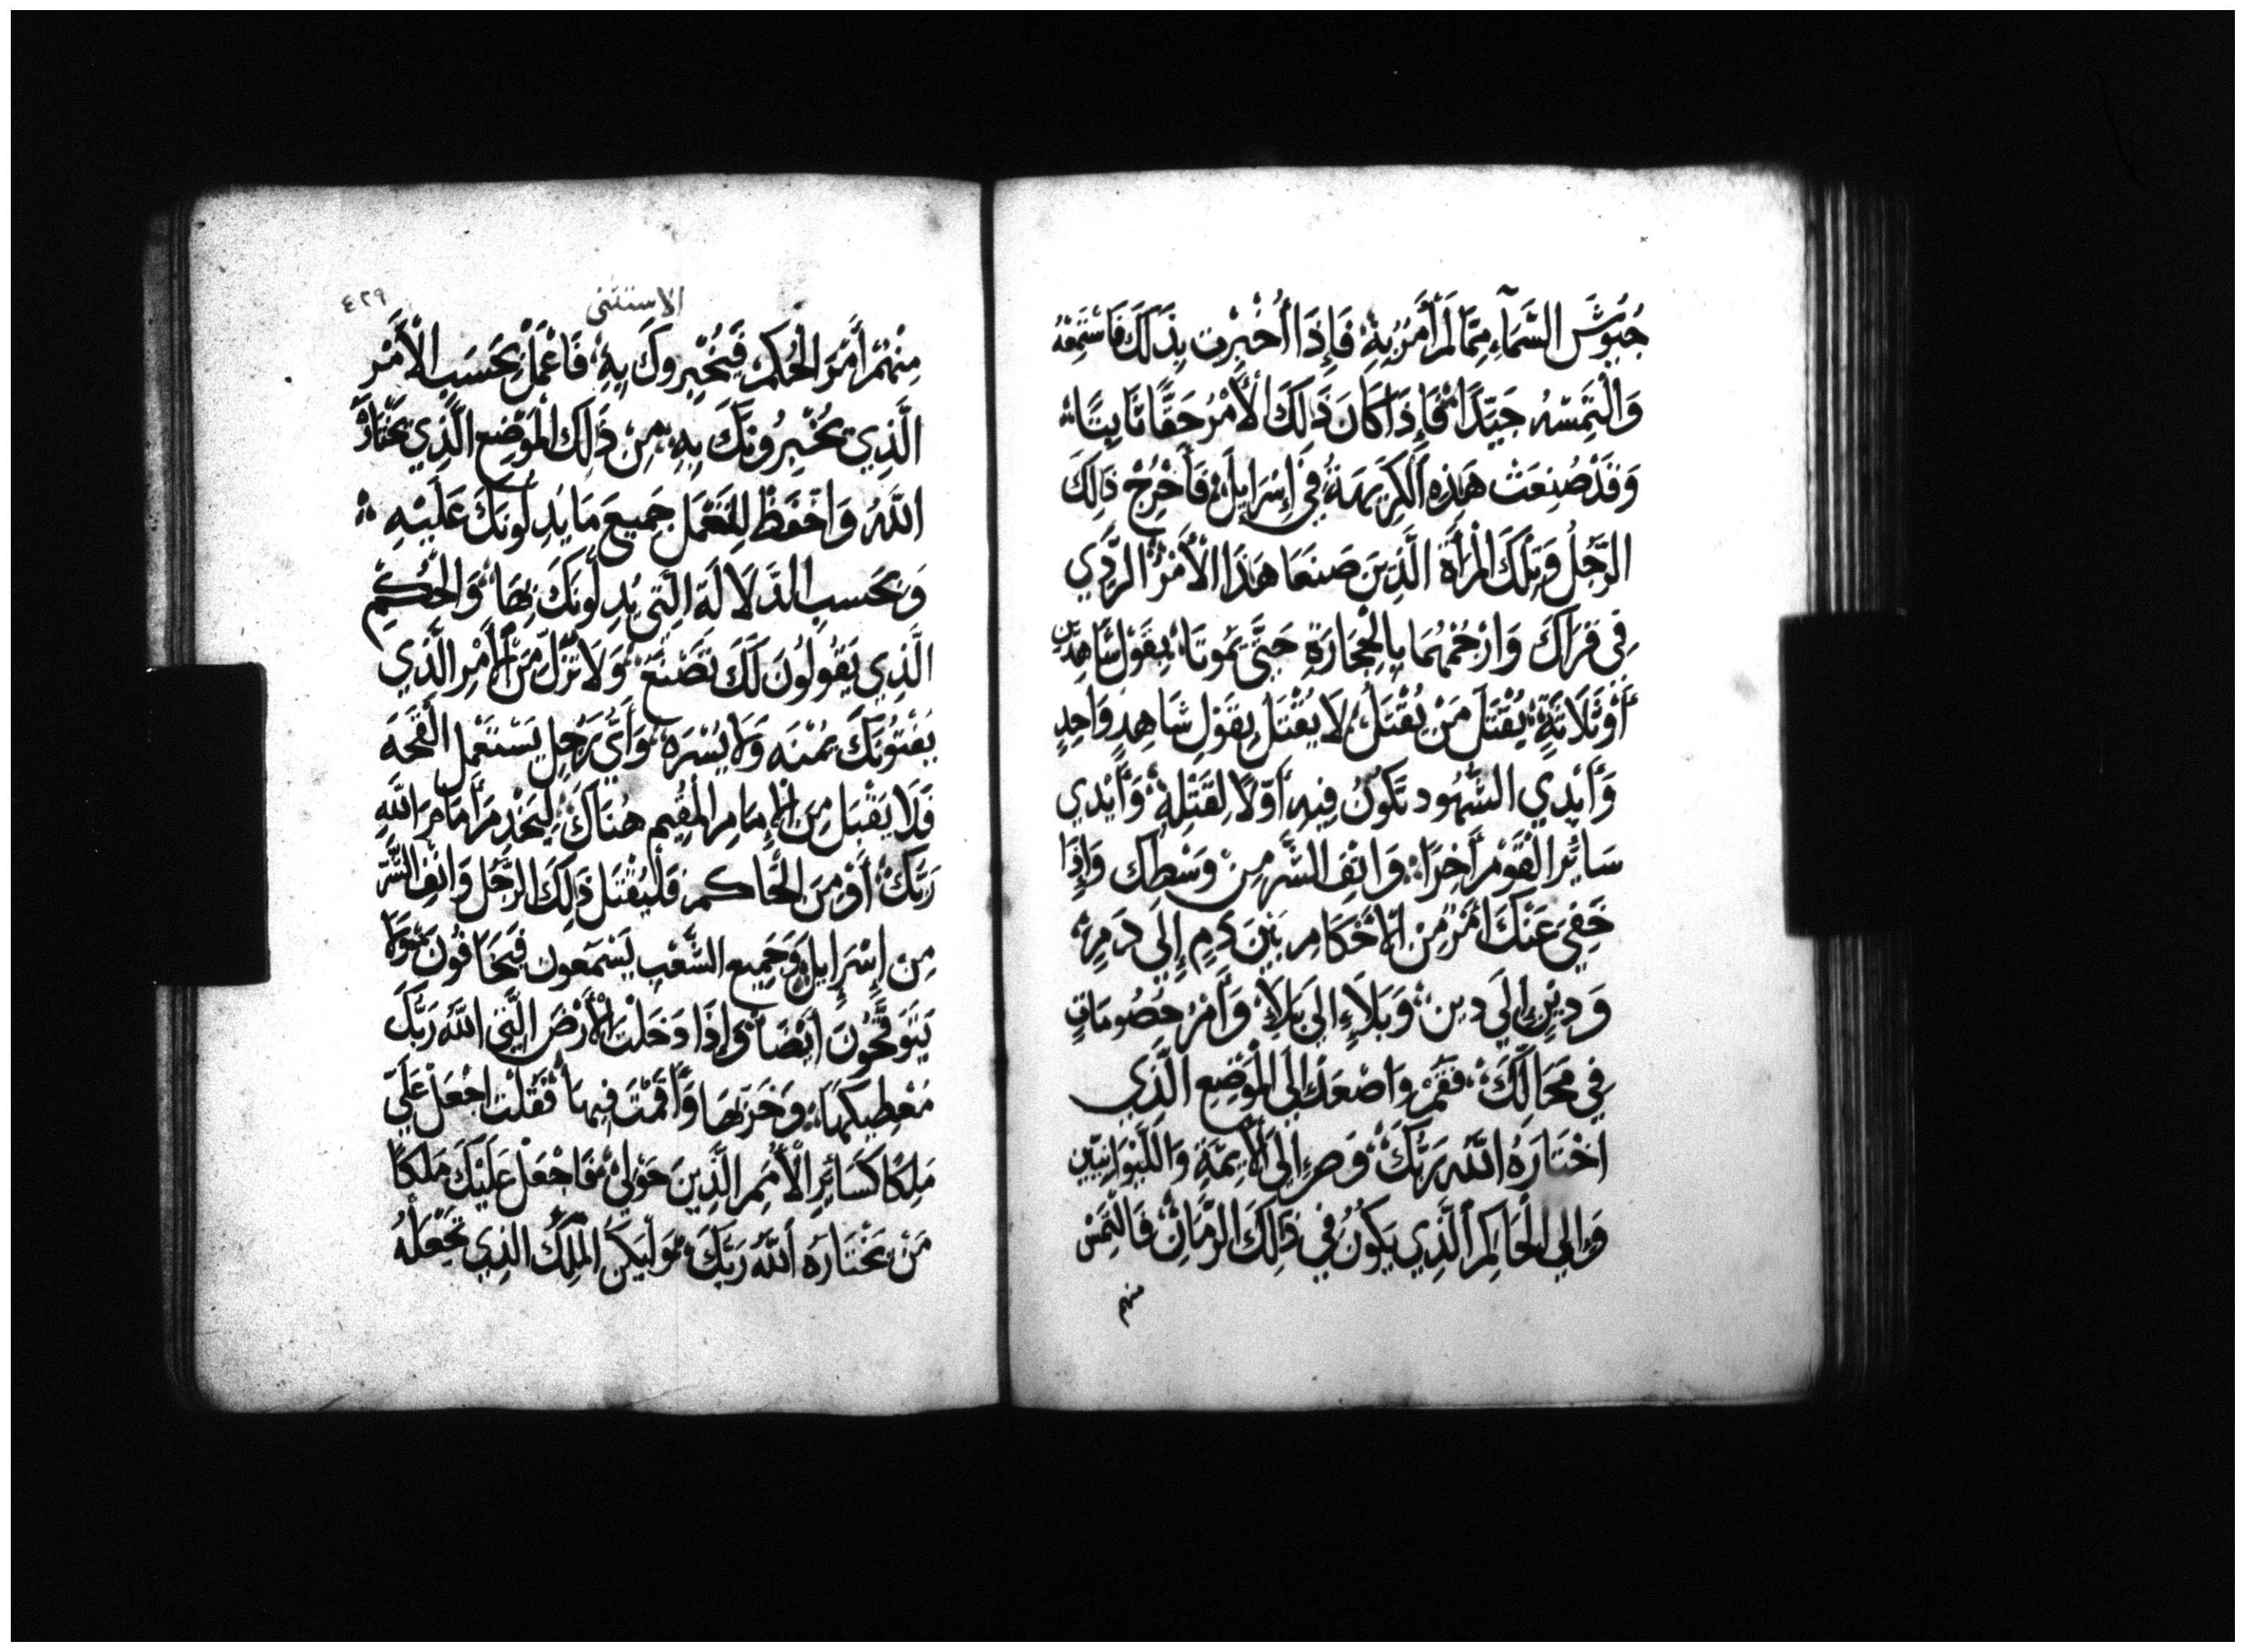 جُيُوشَ السَّمَآءِ مِمَّا لَمْ أَمُرْ بِهِ ۞ فَإِذَا أُخْبِرْتَ بِذَلِكَ فَاسْتَمِعْهُ
وَالْتَمِسْهُ جَيِّدًا ۞ فَإِذَا كَانَ ذَلِكَ الْأَمْرُ حَقًّا ثَابِتًا ۞
وَقَدْ صُنِعَتْ هَذِهِ الْكَرِيهَةُ فِي إِسْرَايِلَ ۞ فَأَخْرِجْ ذَلِكَ
الرَّجُلَ وَتِلْكَ الْمَرْأَةَ الَّذِينَ صَنَعَا هَذَا الْأَمْرَ الرَّدِي
فِي قُرَاكَ وَارْجُمْهُمَا بِالْحِجَارَةِ حَتَّى يَمُوتَا ۞ بِقَوْلِ شَاهِدَيْنِ
أَوْ ثَلَاثَةٍ ۞ يُقْتَلُ مَنْ يُقْتَلُ ۞ لَا يُقْتَلُ بِقَوْلِ شَاهِدٍ وَاحِدٍ
وَأَيْدِي الشُّهُودِ تَكُونُ فِيهِ أَوَّلًا لِقَتْلِهِ ۞ وَأَيْدِي
سَائِرِ الْقَوْمِ أَخِرًا ۞ وَانْفِ الشَّرَّ مِنْ وَسْطِكَ وَإِذَا
خَفِيَ عَنْكَ أَمْرٌ مِنَ الْأَحْكَامِ بَيْنَ دَمٍ إِلَى دَمٍ ۞
وَدِينٍ إِلَى دِينٍ ۞ وَبَلَاءٍ إِلَى بَلَاءٍ ۞ وَأَمْرُ خُصُومَاتٍ
فِي مَحَالِّكَ ۞ فَقُمْ وَاصْعَدْ إِلَى الْمَوْضِعِ الَّذِي
اخْتَارَهُ اللَّهُ رَبُّكَ ۞ وَصِرْ إِلَى الْأَيِمَّةِ وَاللِّيْوَانِيِّينَ
وَإِلَى الْحَاكِمِ الَّذِي يَكُونُ فِي ذَلِكَ الزَّمَانِ ۞ فَالْتَمِسْ
منهم
الاستثنى
٤٢٩
مِنْهُمْ أَمْرَ الْحُكْمِ فَيُخْبِرُوكَ بِهِ ۞ فَاعْمَلْ بِحَسَبِ الْأَمْرِ
الَّذِي يُخْبِرُونَكَ بِهِ ۞ مِنْ ذَلِكَ الْمَوْضِعِ الَّذِي يَخْتَارُهُ
اللَّهُ وَاحْفَظْ لِتَعْمَلَ جَمِيعَ مَا يَدِلُّونَكَ عَلَيْهِ ۞
وَبِحَسَبِ الدَّلَالَةِ الَّتِي يَدِلُّونَكَ بِهَا ۞ وَالْحُكْمِ
الَّذِي يَقُولُونَ لَكَ تَصْنَعُ ۞ وَلَا تَزُلْ مِنَ الْأَمْرِ الَّذِي
يُفْتُونَكَ يَمْنَه وَلَا يُسْرَه ۞ وَأَيُّ رَجُلٍ يَسْتَعْمِلُ الْقِحَةَ
فَلَا يَقْبَلُ مِنَ الْإِمَامِ الْمُقِيمِ هُنَاكَ ۞ لِيَخْدِمَ أَمَامَ اللَّهِ
رَبِّكَ ۞ أَوْ مِنَ الْحَاكِمِ فَلْيُقْتَلْ ذَلِكَ الرَّجُلُ وَانْفِ الشَّرَّ
مِنْ إِسْرَايِلَ ۞ وَجَمِيعُ الشَّعْبِ يَسْمَعُونَ فَيَخَافُونَ ۞ وَلَا
يَتَوَقَّحُونَ أَيْضًا ۞ وَإِذَا دَخَلْتَ الْأَرْضَ الَّتِي اللَّهُ رَبُّكَ
مُعْطِيكَهَا ۞ وَحُزْتَهَا وَأَقَمْتَ فِيهَا ۞ فَقُلْتَ اجْعَلْ عَلَيَّ
مَلِكًا كَسَائِرِ الْأُمَمِ الَّذِينَ حَوْلِي ۞ فَاجْعَلْ عَلَيْكَ مَلِكًا
مَنْ يَخْتَارُهُ اللَّهُ رَبُّكَ ۞ وَلْيَكُنِ الْمَلِكُ الَّذِي تَجْعَلُهُ